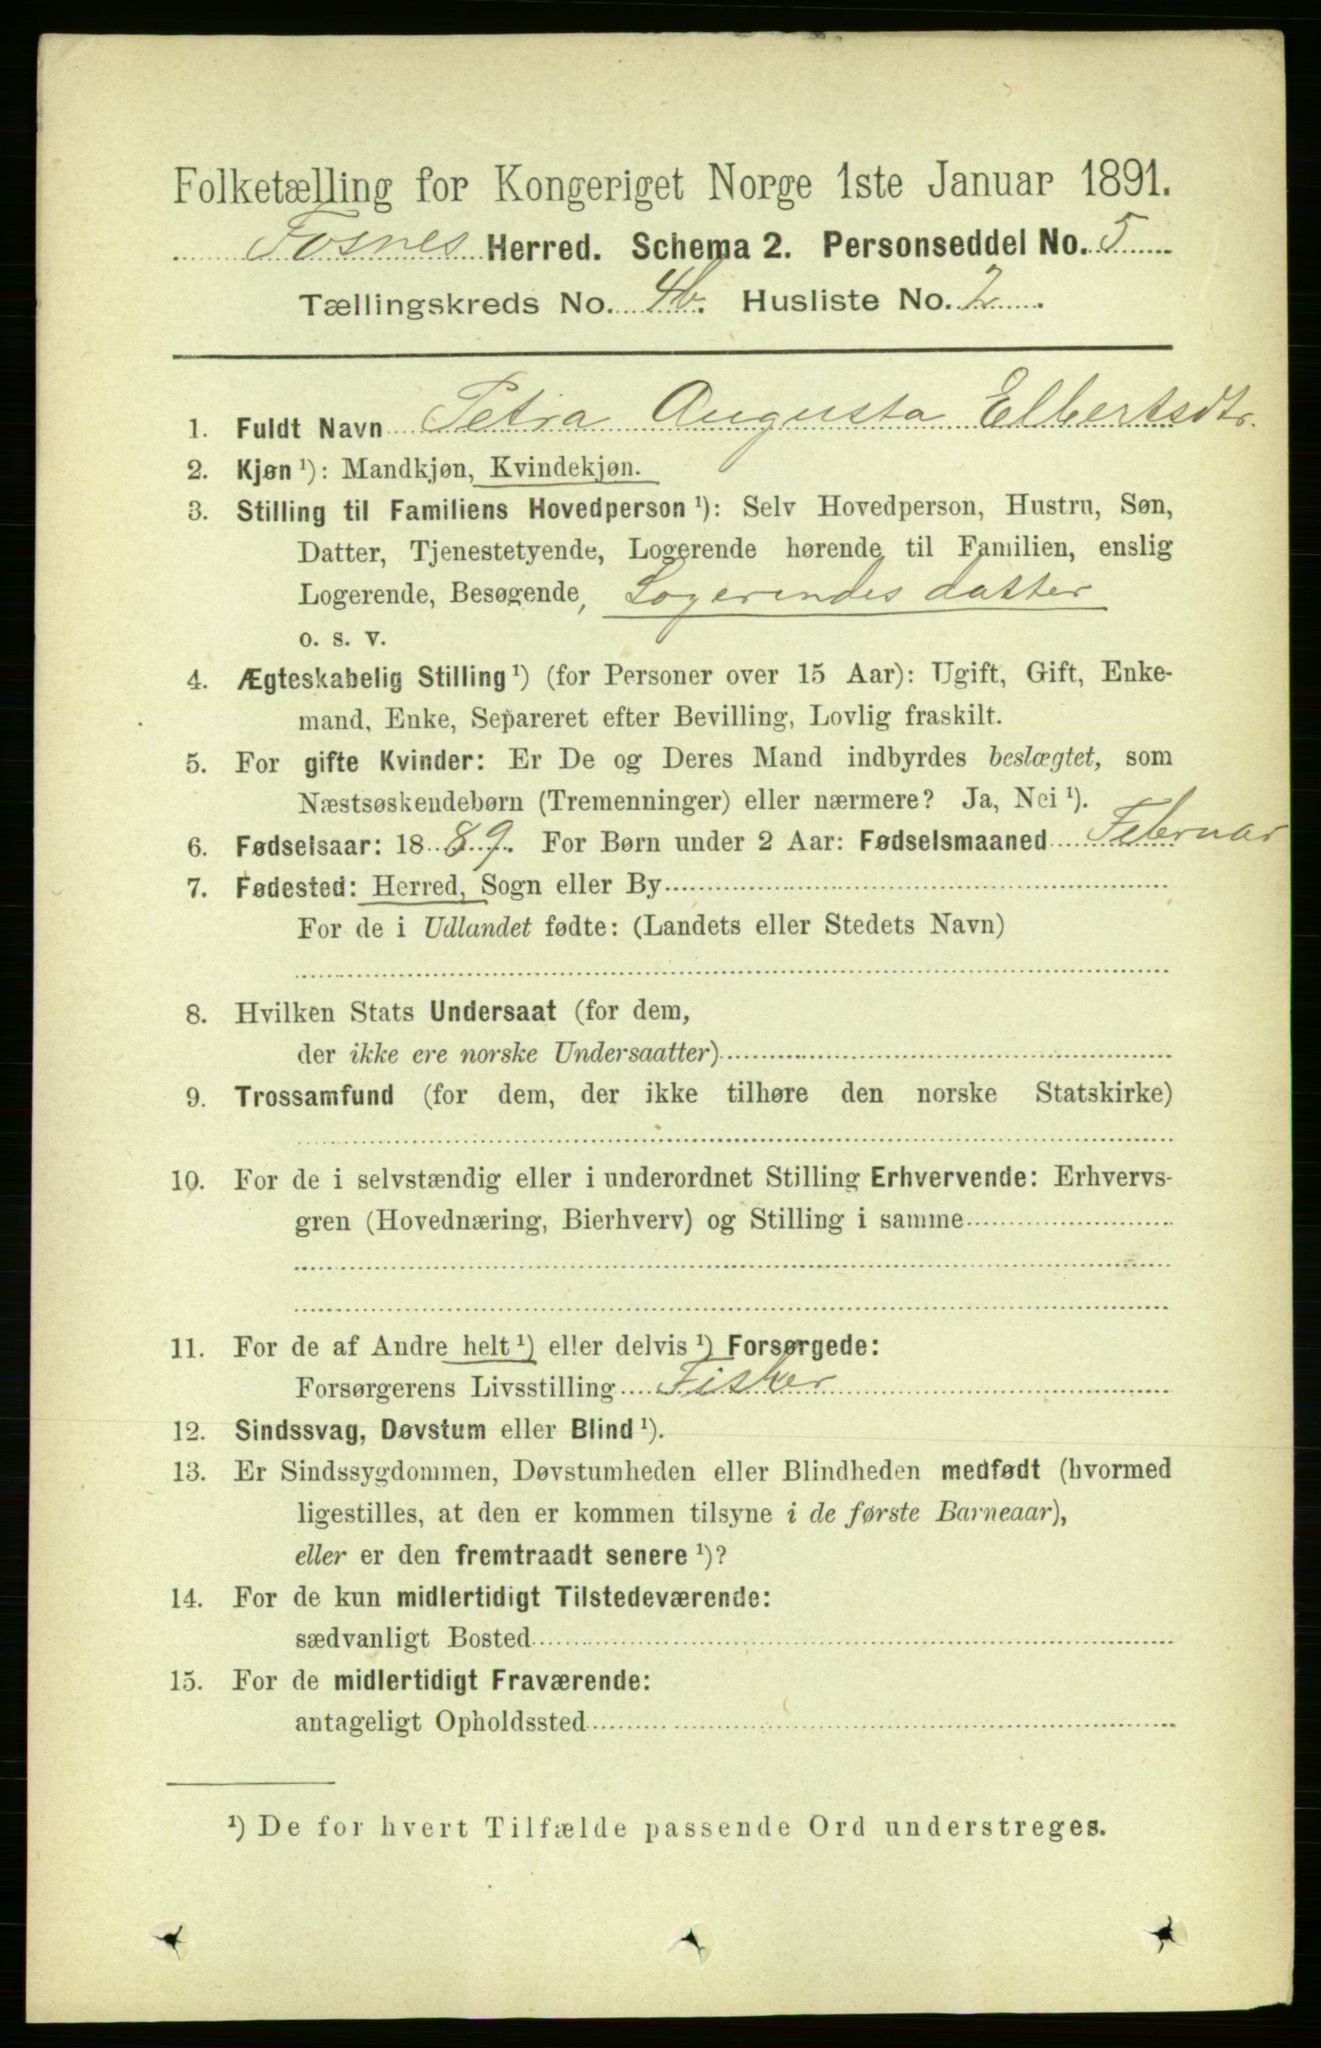 Folketælling for Kongeriget Norge 1ste Januar 1891.
Fosnes Herred. Schema 2. Personseddel No. 5
Tællingskreds No. 4b. Husliste No. 2.
1. Fuldt Navn Petra Augusta Elbertsdtr.
2. Kjøn ¹): Mandkjøn, Kvindekjøn.
3. Stilling til Familiens Hovedperson ¹): Selv Hovedperson, Hustru, Søn,
Datter, Tjenestetyende, Logerende hørende til Familien, enslig
Logerende, Besøgende, Logerendes datter
o. s. v.
4. Ægteskabelig Stilling ¹) (for Personer over 15 Aar): Ugift, Gift, Enke-
mand, Enke, Separeret efter Bevilling, Lovlig fraskilt.
5. For gifte Kvinder: Er De og Deres Mand indbyrdes beslægtet, som
Næstsøskendebørn (Tremenninger) eller nærmere? Ja, Nei ¹).
6. Fødselsaar: 1889. For Børn under 2 Aar: Fødselsmaaned Februar
7. Fødested: Herred, Sogn eller By
For de i Udlandet fødte: (Landets eller Stedets Navn)
8. Hvilken Stats Undersaat (for dem,
der ikke ere norske Undersaatter)
9. Trossamfund (for dem, der ikke tilhøre den norske Statskirke)
10. For de i selvstændig eller i underordnet Stilling Erhvervende: Erhvervs-
gren (Hovednæring, Bierhverv) og Stilling i samme
11. For de af Andre helt ¹) eller delvis ¹) Forsørgede:
Forsørgerens Livsstilling Fisker
12. Sindssvag, Døvstum eller Blind ¹).
13. Er Sindssygdommen, Døvstumheden eller Blindheden medfødt (hvormed
ligestilles, at den er kommen tilsyne i de første Barneaar),
eller er den fremtraadt senere ¹)?
14. For de kun midlertidigt Tilstedeværende:
sædvanligt Bosted
15. For de midlertidigt Fraværende:
antageligt Opholdssted
¹) De for hvert Tilfælde passende Ord understreges.